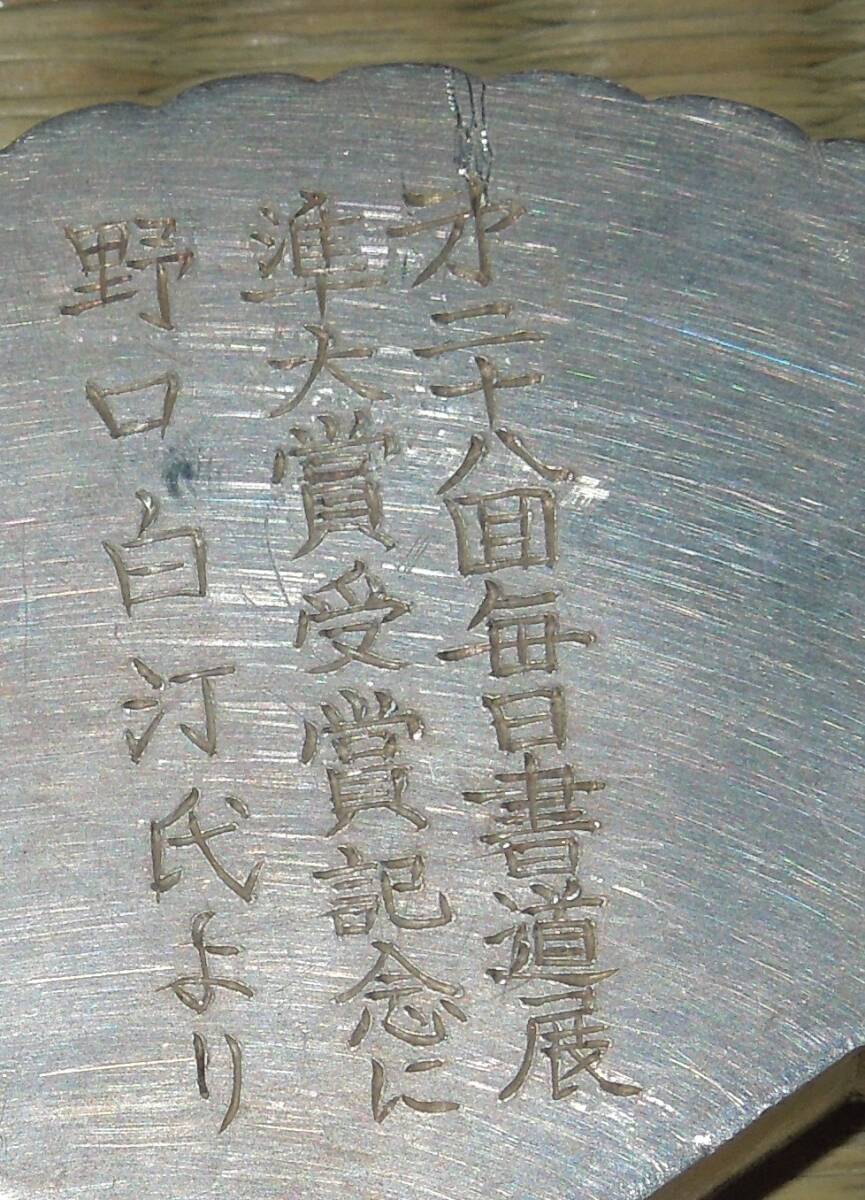 第二十八回毎日書道展
準大賞受賞記念に
野口白汀氏より